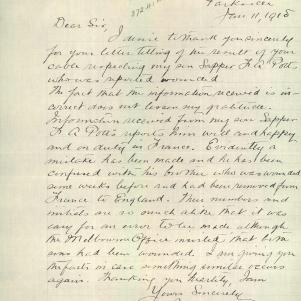 Parkside
Jan 11, 1918
Dear Sir,
I desire to thank you sincerely
for your letter telling of the result of your
cable respecting my son Sapper F A Potts
who was reported wounded.
The fact that the information received is in-
correct does not lessen my gratitude.
Information received from my son Sapper
F A Potts reports him well and happy
and on duty in France. Evidently a
mistake has been made and he has been
confused with his brother who was wounded
some weeks before and had been removed from
France to England. Their numbers and
initials are so much alike that it was
easy for an error to be made although
the Melbourne Office wired that both
sons had been wounded. I am giving you
the facts in case something similar occurs
again. Thanking you heartily, I am
Yours Sincerely